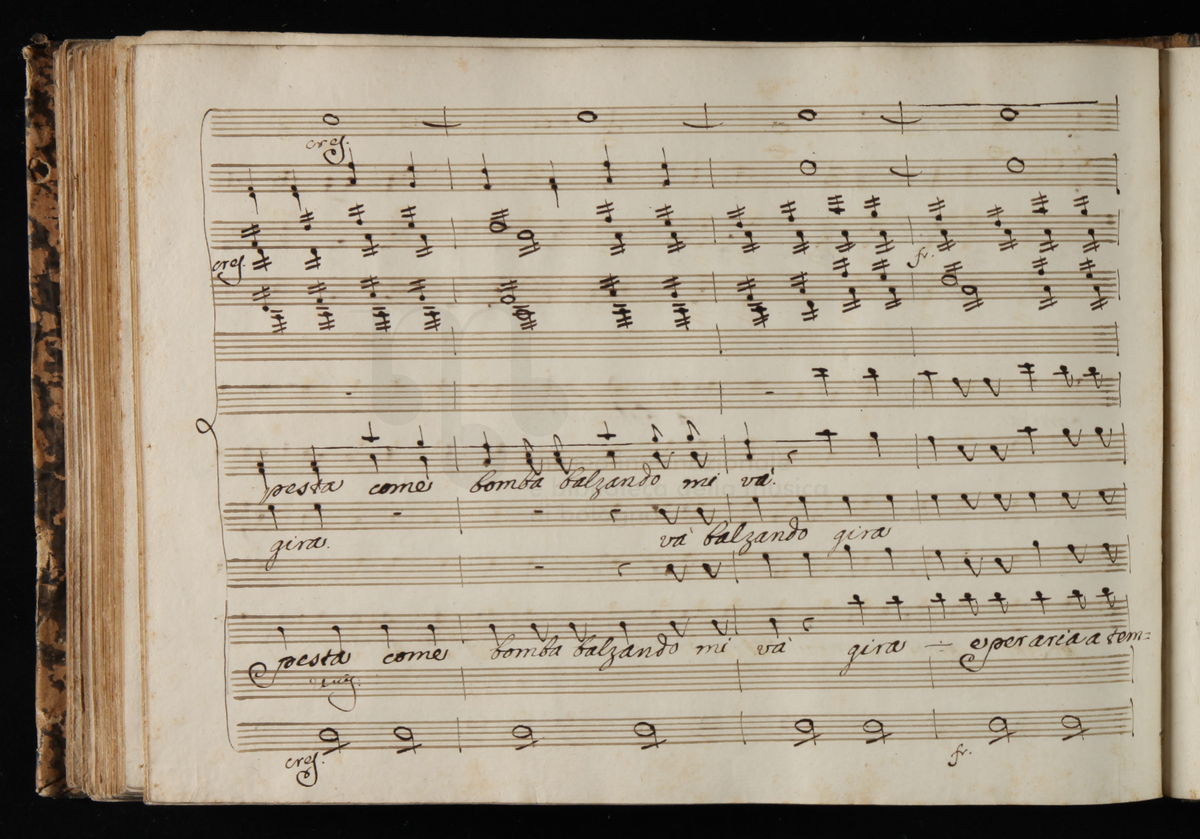 cres.
cres.
fr.
pesta come bomba balzando mi và.
gira. và balzando gira
pesta come bomba balzando mi và gira — e per aria a tem=
cres.
fr.